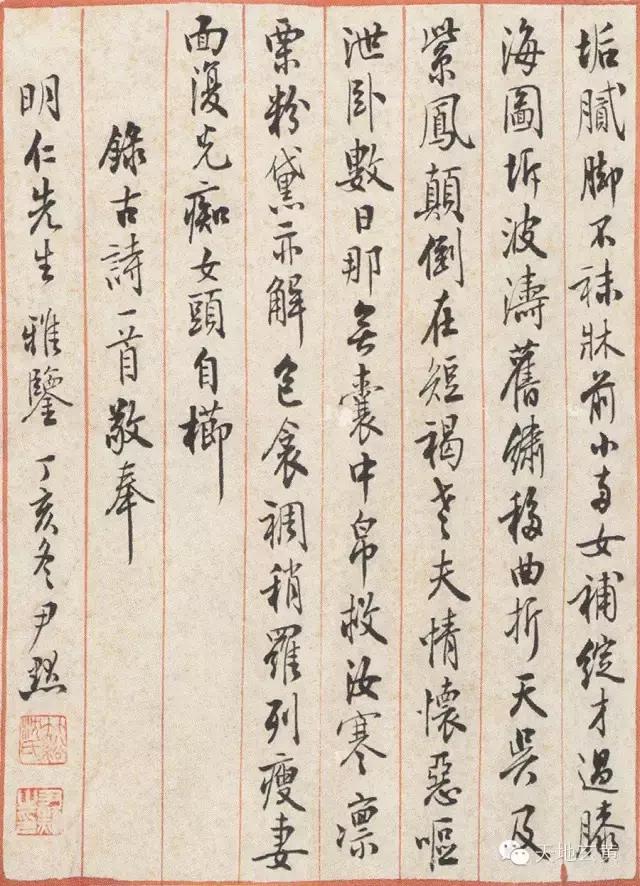 垢膩脚不袜牀前小女女補綻才過膝
海圖坼波濤舊繡移曲折天吳及
紫鳳顛倒在短褐老夫情懷惡嘔
泄臥數日那無囊中帛救汝寒凜
栗粉黛亦解包衾裯稍羅列瘦妻
面復光癡女頭自櫛
錄古詩一首敬奉
明仁先生雅鑒丁亥冬尹默
天地玄黄